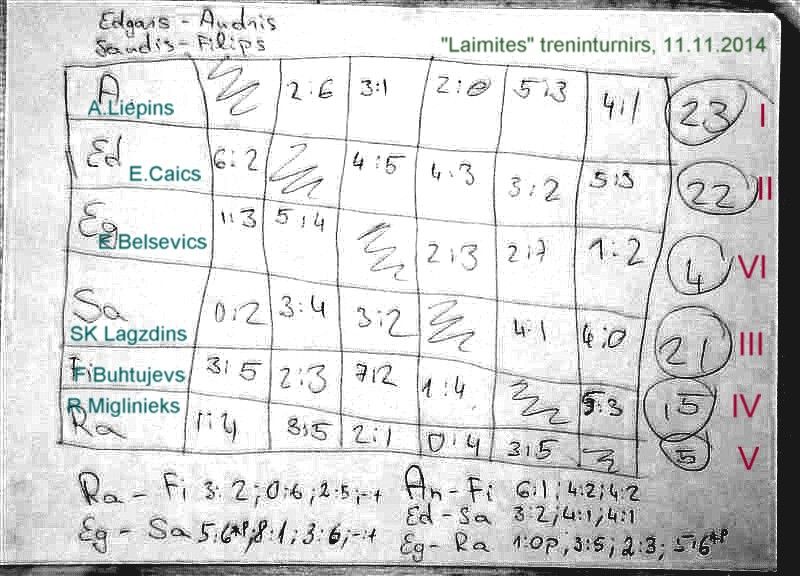 Edgars - Andris
Sandis - Filips
"Laimites" treninturnirs, 11.11.2014
A 2:6 3:1 2:0 5:3 4:1 23 I
A.Liepins
Ed 6:2 4:5 4:3 3:2 5:3 22 II
E.Caics
Eg 1:3 5:4 2:3 2:7 1:2 4 VI
E.Belsevics
Sa 0:2 3:4 3:2 4:1 4:0 21 III
SK Lagzdins
Fi 3:5 2:3 7:2 1:4 5:3 15 IV
F.Buhtujevs
R.Miglinieks
Ra 1:4 3:5 2:1 0:4 3:5 5 V
Ra - Fi 3:2; 0:6; 2:5; -+
An - Fi 6:1; 4:2; 4:2
Ed - Sa 3:2; 4:1; 4:1
Eg - Sa 5:6*P; 8:1; 3:6; -+
Eg - Ra 1:0p, 3:5; 2:3; 5:6*P